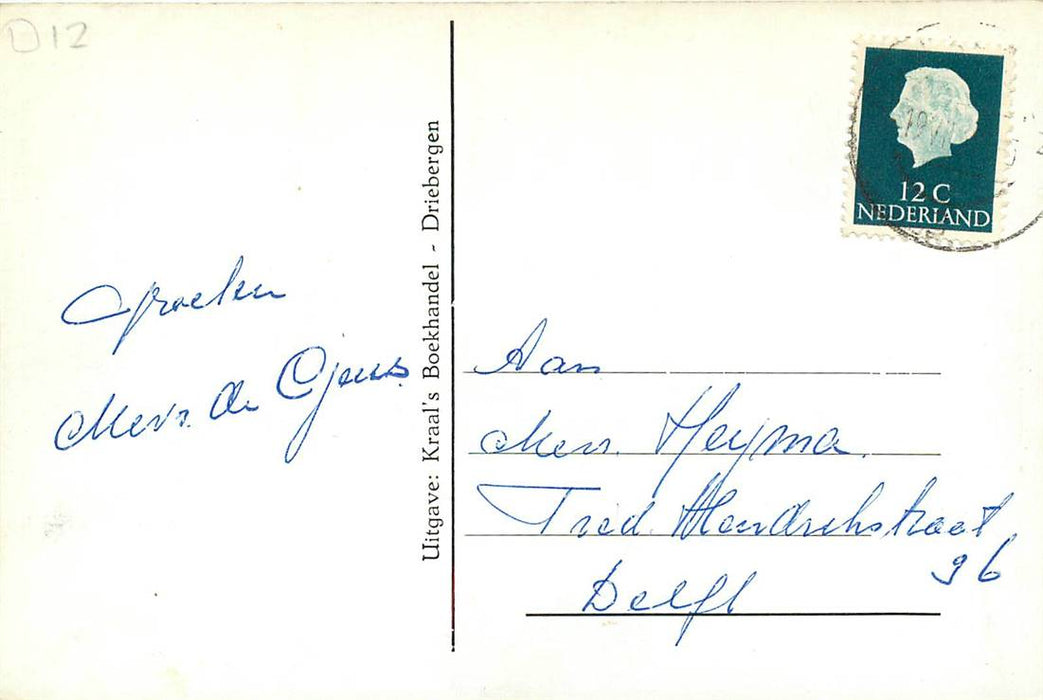 D12
Groeten
Mevr. de
Uitgave: Kraal's Boekhandel - Driebergen
12 C
NEDERLAND
Aan
Mevr. Heyma.
Fred. Hendrikstraat
96
Delft